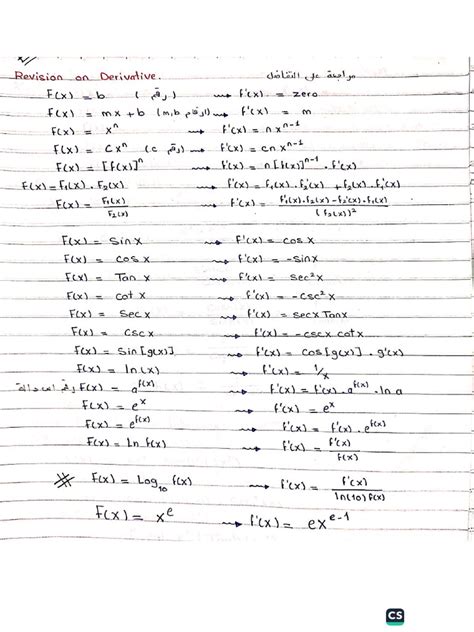 Revision on Derivative. مراجعة على التفاضل
F(x) = b (رقم) ⇝ f'(x) = zero
F(x) = mx + b (m,b ارقام) ⇝ f'(x) = m
F(x) = xⁿ ⇝ f'(x) = n xⁿ⁻¹
F(x) = Cxⁿ (c رقم) ⇝ f'(x) = cn xⁿ⁻¹
F(x) = [f(x)]ⁿ ⇝ f'(x) = n [f(x)]ⁿ⁻¹ . f'(x)
F(x) = F₁(x) . F₂(x) ⇝ f'(x) = f₁(x) . f₂'(x) + f₂(x) . f₁'(x)
F(x) = F₁(x) / F₂(x) ⇝ f'(x) = f₁'(x) . f₂(x) - f₂'(x) . f₁(x) / (f₂(x))²
F(x) = Sin x ⇝ f'(x) = cos x
F(x) = cos x ⇝ f'(x) = -sin x
F(x) = Tan x ⇝ f'(x) = sec² x
F(x) = cot x ⇝ f'(x) = -csc² x
F(x) = Sec x ⇝ f'(x) = sec x Tan x
F(x) = Csc x ⇝ f'(x) = -csc x cot x
F(x) = Sin [g(x)] ⇝ f'(x) = cos [g(x)] . g'(x)
F(x) = ln (x) ⇝ f'(x) = 1/x
رقم F(x) = a^f(x) ⇝ f'(x) = f'(x) . a^f(x) . ln a
F(x) = e^x ⇝ f'(x) = e^x
F(x) = e^f(x) ⇝ f'(x) = f'(x) . e^f(x)
F(x) = Ln f(x) ⇝ f'(x) = f'(x) / f(x)
F(x) = Log₁₀ f(x) ⇝ f'(x) = f'(x) / ln(10) f(x)
F(x) = x^e ⇝ f'(x) = e x^e-1
CS